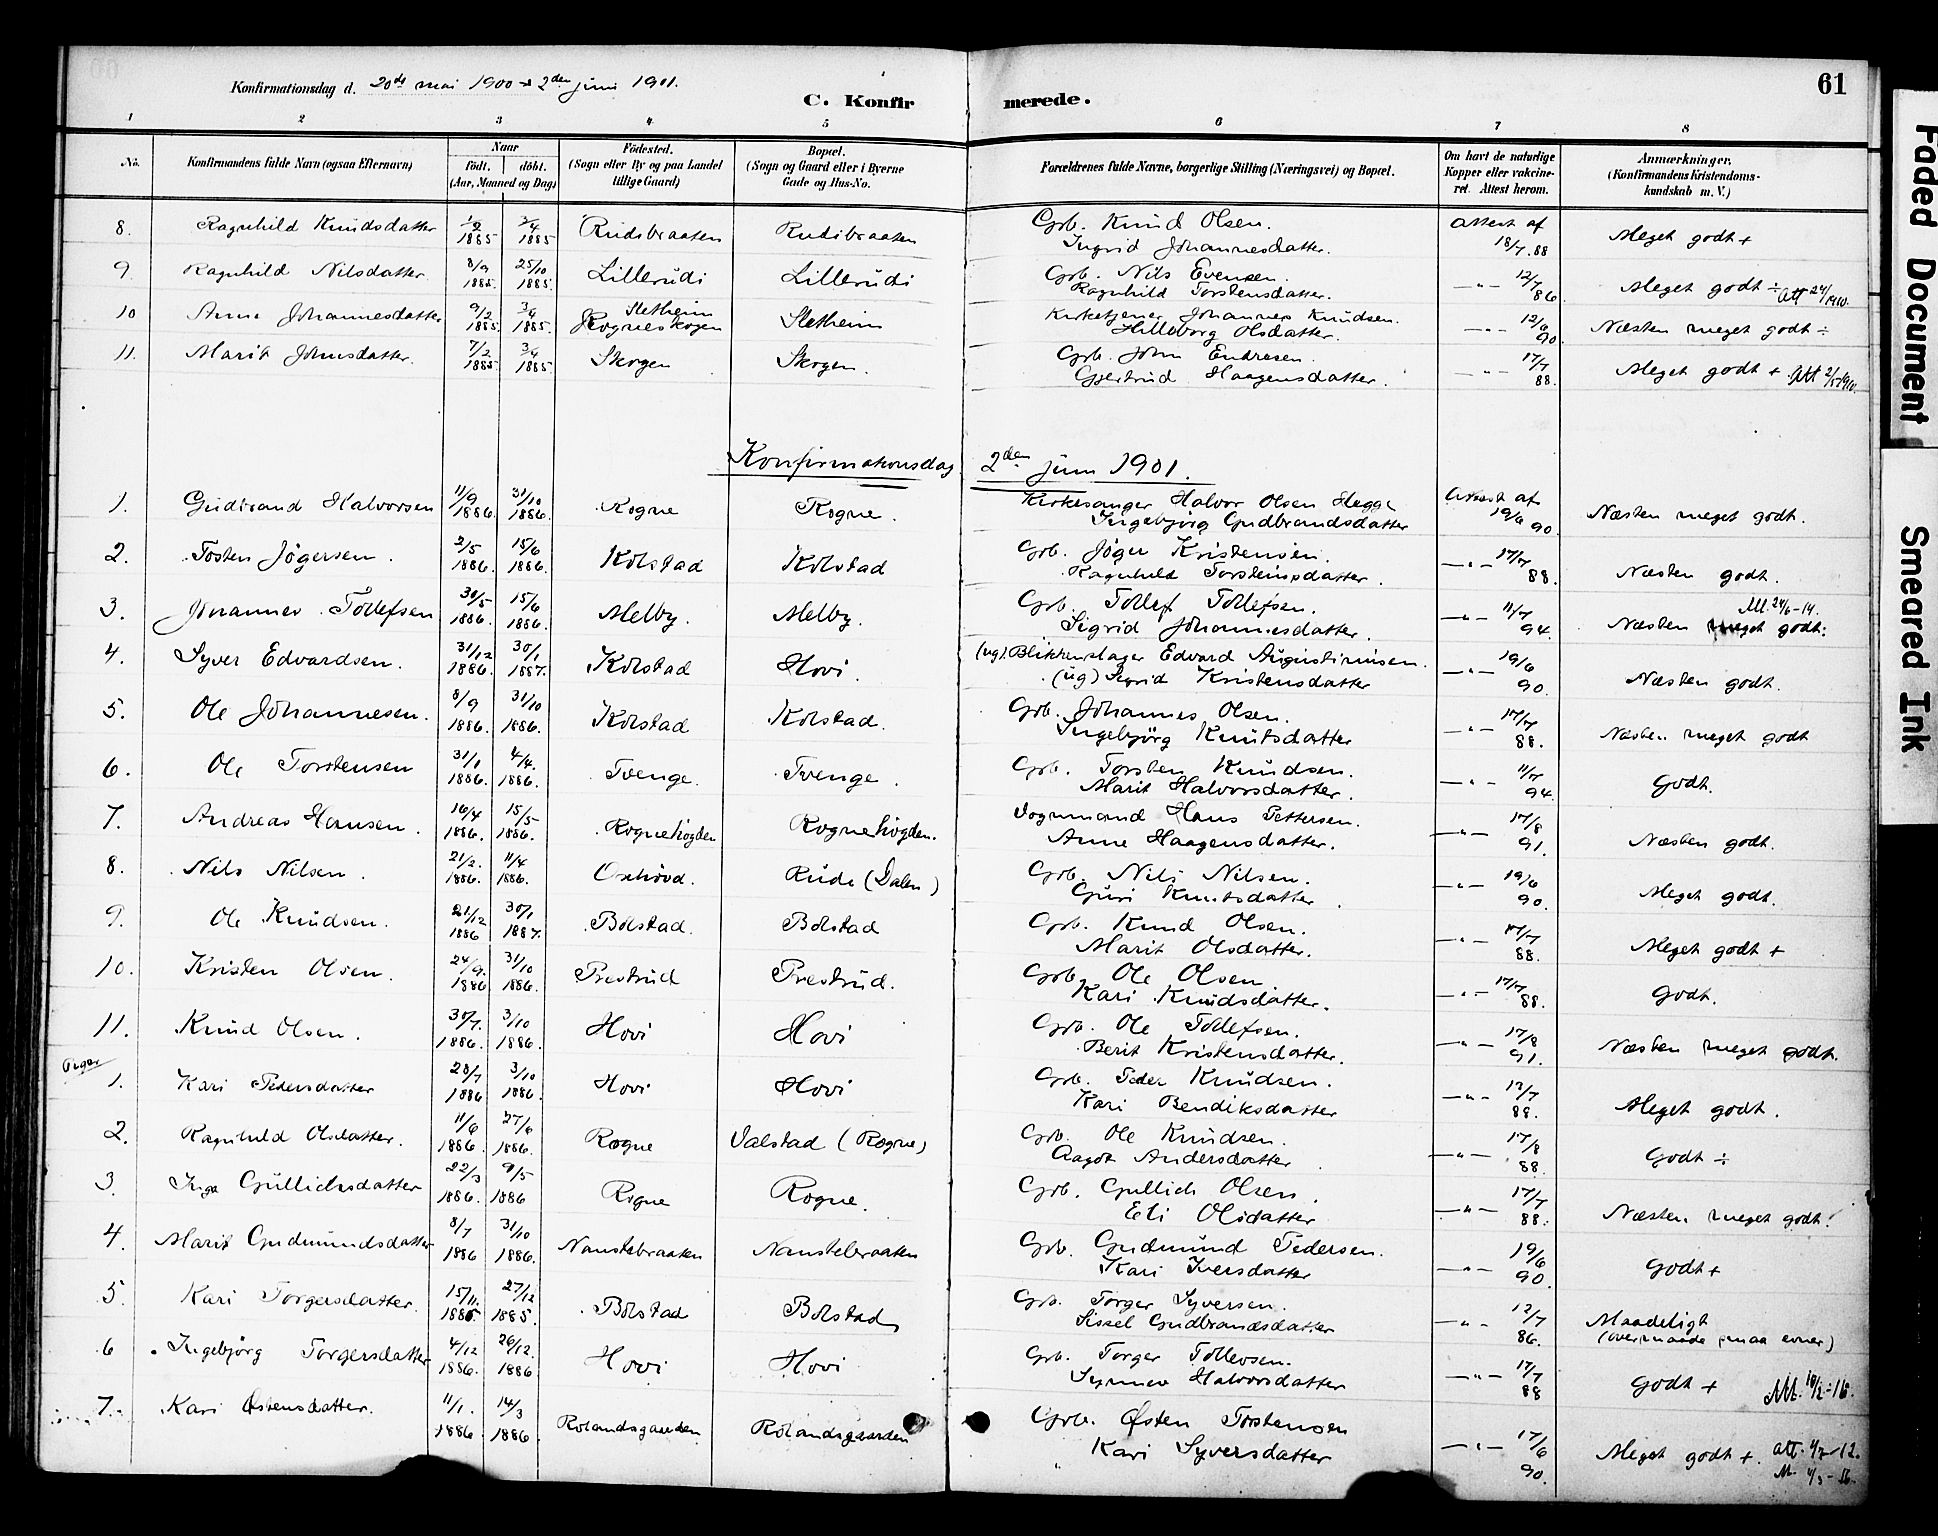 Konfirmationsdag d. 20de mai 1900 & 2den juni 1901.
C. Konfirmerede. 61
1 2 3 4 5 6 7 8
No. Konfirmandens fulde Navn (ogsaa Efternavn) Naar födt. döbt. (Aar, Maaned og Dag) Födested. (Sogn eller By og paa Landet tillige Gaard) Bopæl. (Sogn og Gaard eller i Byerne Gade og Hus-No. Forældrenes fulde Navne, borgerlige Stilling (Næringsvei) og Bopæl. Om havt de naturlige Kopper eller vakcineret. Attest herom. Anmærkninger. (Konfirmandens Kristendomskundskab m. V.)
8. Ragnhild Knudsdatter 1/2 1885 3/4 1885 Rudibraaten Rudibraaten Grb. Knud Olsen. Attest af 18/7.88 Meget godt +
Ingrid Johannesdatter.
9. Ragnhild Nilsdatter 8/9 1885. 25/10 1885. Lillerudi Lillerudi Grb. Nils Evensen. —"— 12/7 86 Meget godt ÷ Att 24/ 1910.
Ragnhild Torstensdatter.
10 Anne Johannesdatter 9/2 1885. 3/4 1885. Sletheim Rogneskogen Sletheim Kirketjener Johannes Knudsen. —"— 12/6 90. Næsten meget godt ÷
Hilleborg Olsdatter.
11. Marit Johnsdatter. 7/2 1885 3/4 1885. Skogen Skogen. Grb. John Endresen. —"— 17/7 88. Meget godt + Att 2/5 1910.
Gjertrud Haagensdatter.
Konfirmationsdag 2den juni 1901.
1. Gudbrand Halvorsen 11/9 1886. 31/10 1886. Rogne Rogne. Kirkesanger Halvor Olsen Hegge Attest af 19/6 90. Næsten meget godt.
Ingebjörg Gudbrandsdatter
2. Tosten Jögersen. 2/5 1886. 15/6 1886. Kolstad Kolstad Grb. Jöger Kristensen. —"— 17/7 88. Næsten godt.
Ragnhild Torstensdatter.
3. Johannes Tollefsen 30/5 1886. 15/6 1886. Melby. Melby. Grb. Tollef Tollefsen. —"— 11/7 94. Næsten meget godt. M. 24/6-14.
Sigrid Johannesdatter.
4. Syver Edvardsen. 31/12 1886. 30/1 1887. Kolstad Hovi. (ug). Blikkenslager Edvard Augustinusen. —"— 19/6 90. Næsten godt.
(ug) Sigrid Kristensdatter
5. Ole Johannesen. 8/9 1886. 31/10 1886. Kolstad Kolstad. Grb. Johannes Olsen. —"— 17/7 88. Næsten meget godt
Ingebjörg Knutsdatter
6. Ole Torstensen 31/1 1886. 4/4. 1886. Tvenge. Tvenge. Grb. Torsten Knudsen. —"— 11/7 94. Godt.
Marit Halvorsdatter.
7. Andreas Hansen. 16/4 1886. 15/5 1886. Rognehögden Rognehögden. Vognmand Hans Pettersen. —"— 17/8 91. Næsten godt.
Anne Haagensdatter.
8. Nils Nilsen. 21/2. 1886. 11/4 1886. Oxehövd. Rudi (Dalen) Grb. Nils Nilsen. —"— 19/6 90. Meget godt.
Guri Knutsdatter
9. Ole Knudsen. 21/12 1886 30/1 1887. Bolstad. Bolstad Grb. Knud Olsen. —"— 17/7 88. Meget godt +
Marit Olsdatter.
10. Kristen Olsen. 24/9. 1886 31/10 1886. Prestrud Prestrud. Grb. Ole Olsen —"— 17/7 88. Godt.
Kari Knudsdatter.
11. Knud Olsen. 30/7. 1886. 3/10 1886. Hovi Hovi Grb. Ole Tollefsen. —"— 17/8 91. Næsten meget godt.
Berit Kristensdatter.
Piger
1. Kari Pedersdatter 28/7 1886 3/10 1886. Hovi Hovi Grb. Peder Knudsen. —"— 17/7 88. Meget godt.
Kari Bendiksdatter
2. Ragnhild Olsdatter. 11/6 1886. 27/6 1886. Rogne Valstad (Rogne) Grb. Ole Knudsen. —"— 17/8 88. Godt ÷
Aagot Andersdatter
3. Inga Gullichsdatter 22/3 1886. 9/5 1886 Rogne Rogne. Grb. Gullich Olsen. —"— 17/7 88. Næsten meget godt.
Eli Olsdatter
4. Marit Gudmundsdatter 8/7 1886 31/10 1886. Naustebraaten Naustebraaten Grb. Gudmund Pedersen. —"— 19/6 90. Godt +
Kari Iversdatter
5. Kari Torgersdatter. 15/11. 1885 27/12 1885. Bolstad Bolstad Grb. Torger Syversen. —"— 12/7 86. Maadeligt
Sissel Gudbrandsdatter (overmaade smaa evner)
6 Ingebjörg Torgersdatter 4/12 1886. 26/12. 1886 Hovi Hovi Grb. Torger Tollevsen. —"— 17/7 88 Godt +
Synnev Halvorsdatter
7. Kari Östensdatter. 11/1. 1886. 14/3 1886 Rolandsgaarden Rolandsgaarden Grb. Östen Torstensen —"— 17/6 90. Meget godt +.
Kari Syversdatter
Faded Document
Smeared Ink